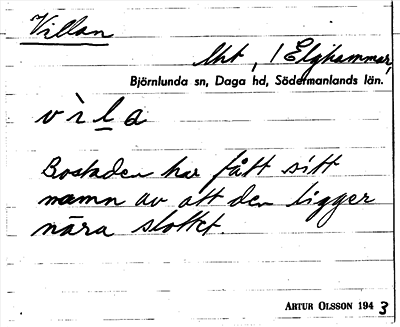 Villan
lht, / Elghammar,
Björnlunda sn, Daga hd, Södermanlands län.
v ì l a
Bostaden har fått sitt
namn av att den ligger
nära slottet.
ARTUR OLSSON 194 3